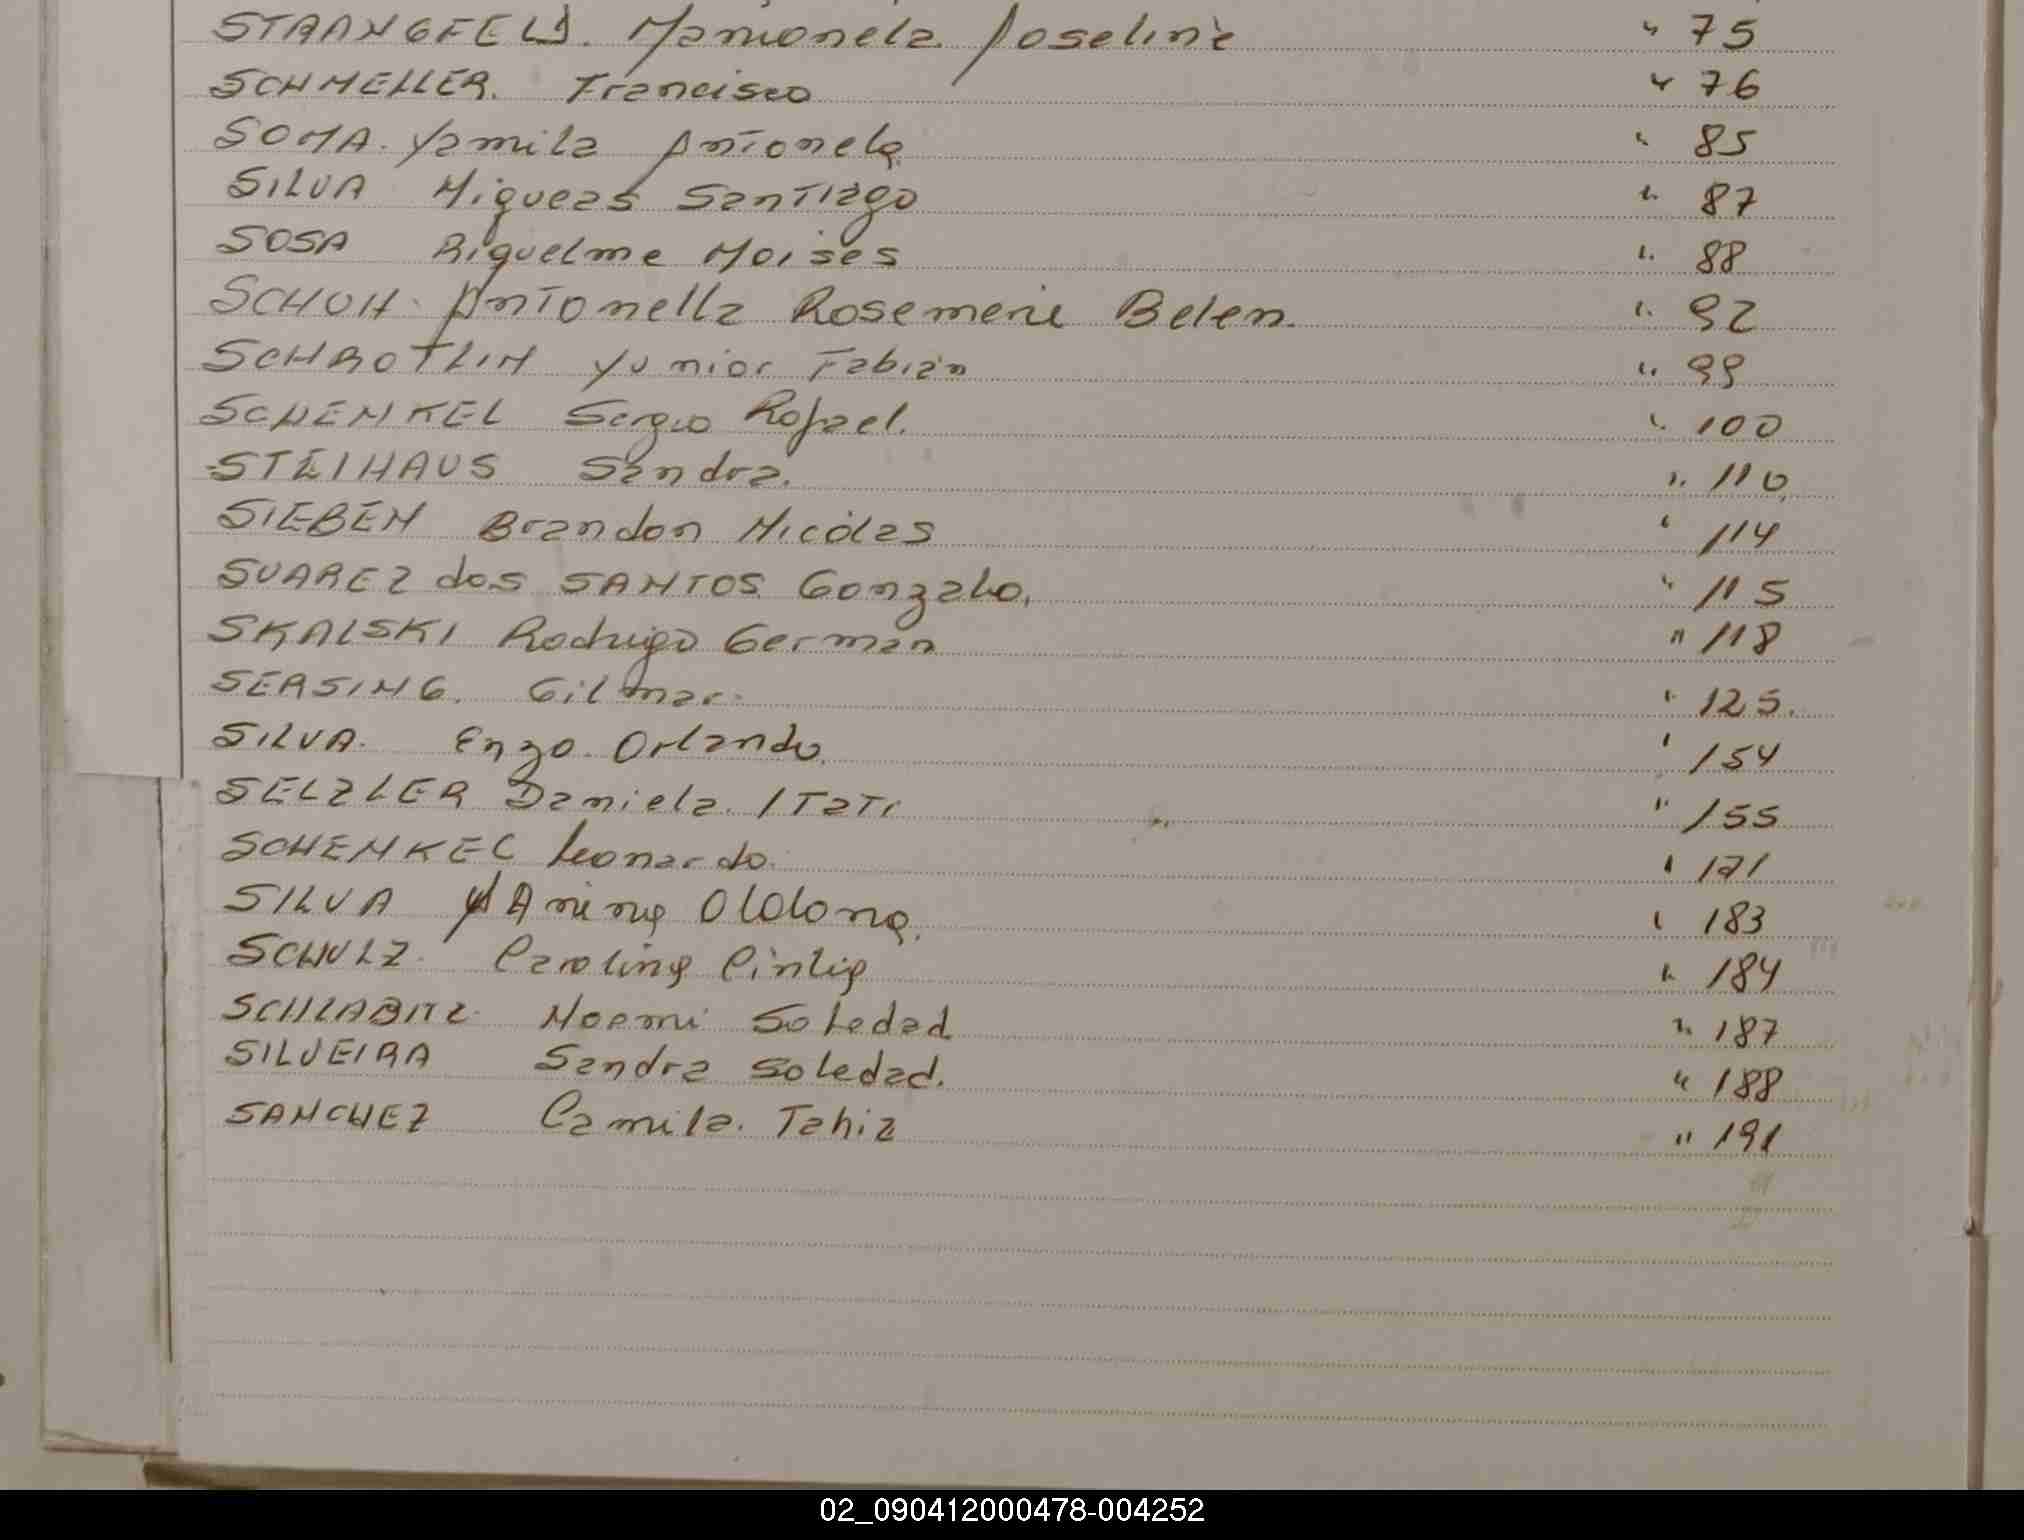 STRANGFELD. Marionela Joseline " 75
SCHMELLER. Francisco " 76
SOMA. Yamila Antonela " 85
SILVA Miqueas Santiago " 87
SOSA Riquelme Moises " 88
SCHOH. Antonella Rosemerie Belen. " 92
SCHROTLIN Yunior Fabian " 99
SCHENKEL Sergio Rafael. " 100
STEIHAUS Sandra. " 110
SIEBEN Brandon Nicólas " 114
SUAREZ dos SANTOS Gonzalo. " 115
SKALSKI Rodrigo German " 118
SEASING. Gilmar. " 125.
SILVA. Enzo Orlando. " 154
SELZLER Daniela ITATI " 155
SCHENKEL Leonardo. " 171
SILVA " 183
SCHULZ. Carolina Cintia " 184
SCHLABITZ. Noemi Soledad " 187
SILVEIRA Sandra Soledad. " 188
SANCHEZ Camila. Tahiz " 191
02_090412000478-004252